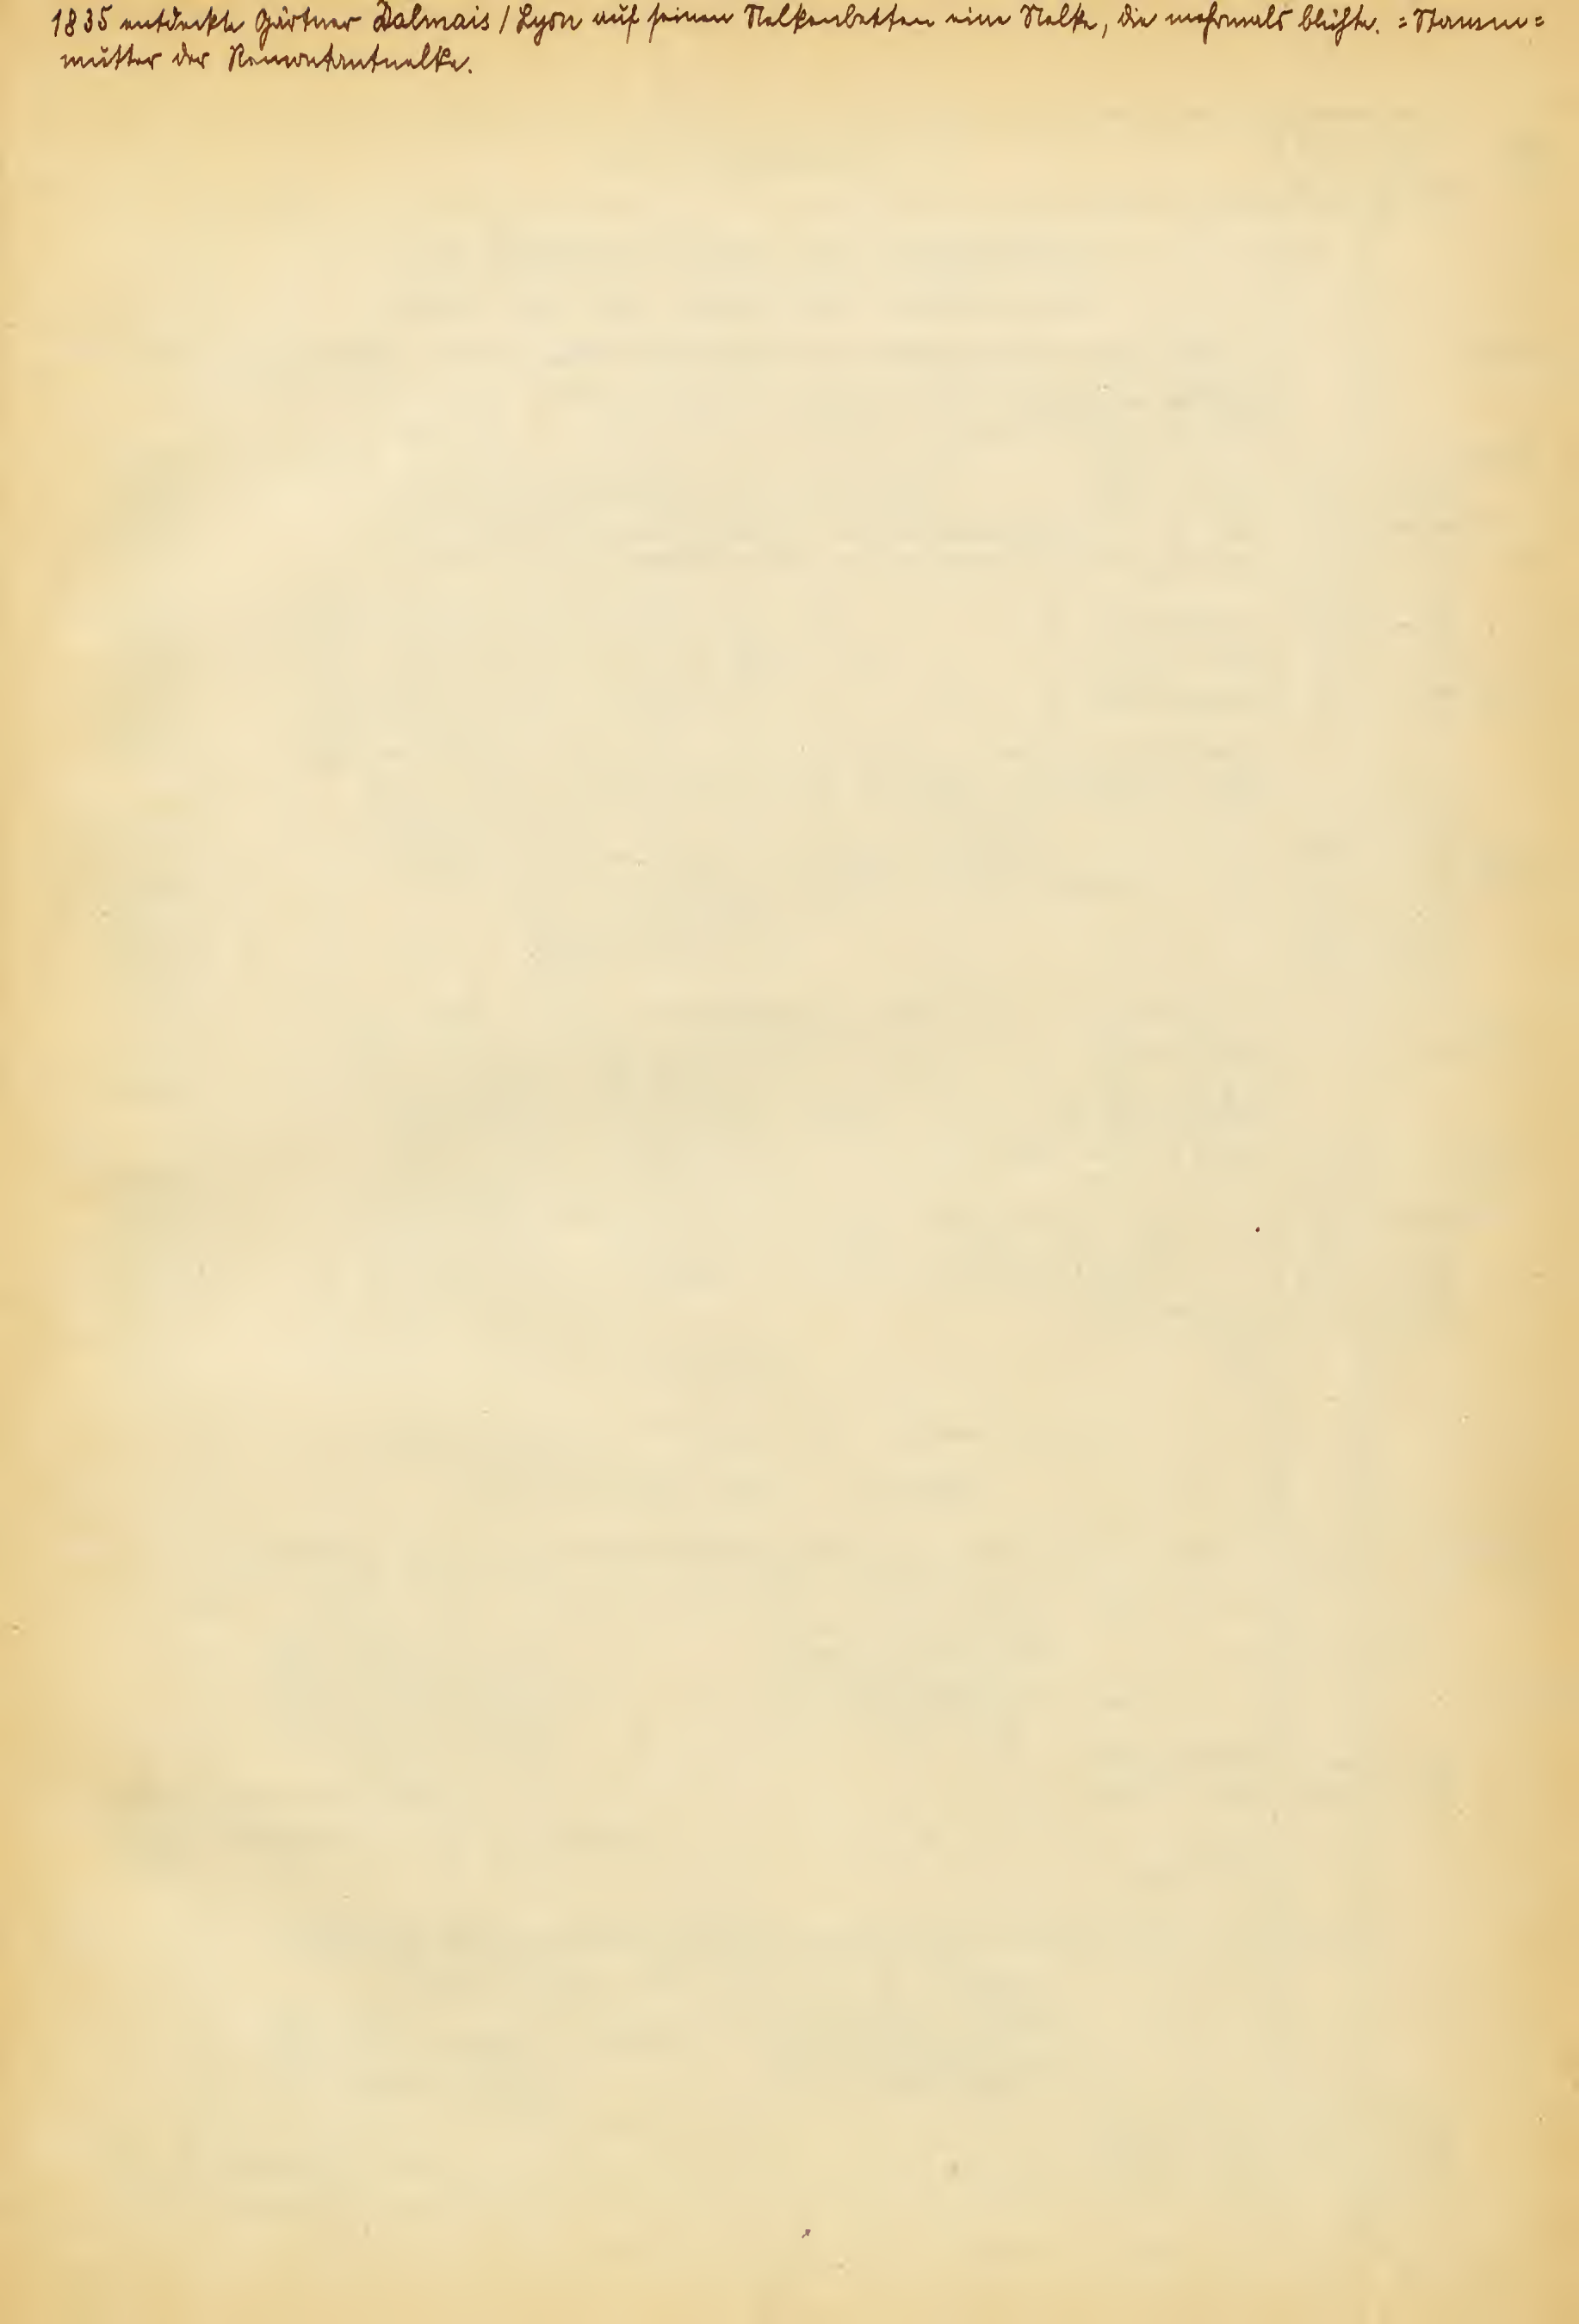 1835 entdeckte Gärtner Dalmais / Lyon auf seinen Nelkenbetten eine Nelke, die mehrmals blühte. = Stamm=
mutter der Remontantnelke.